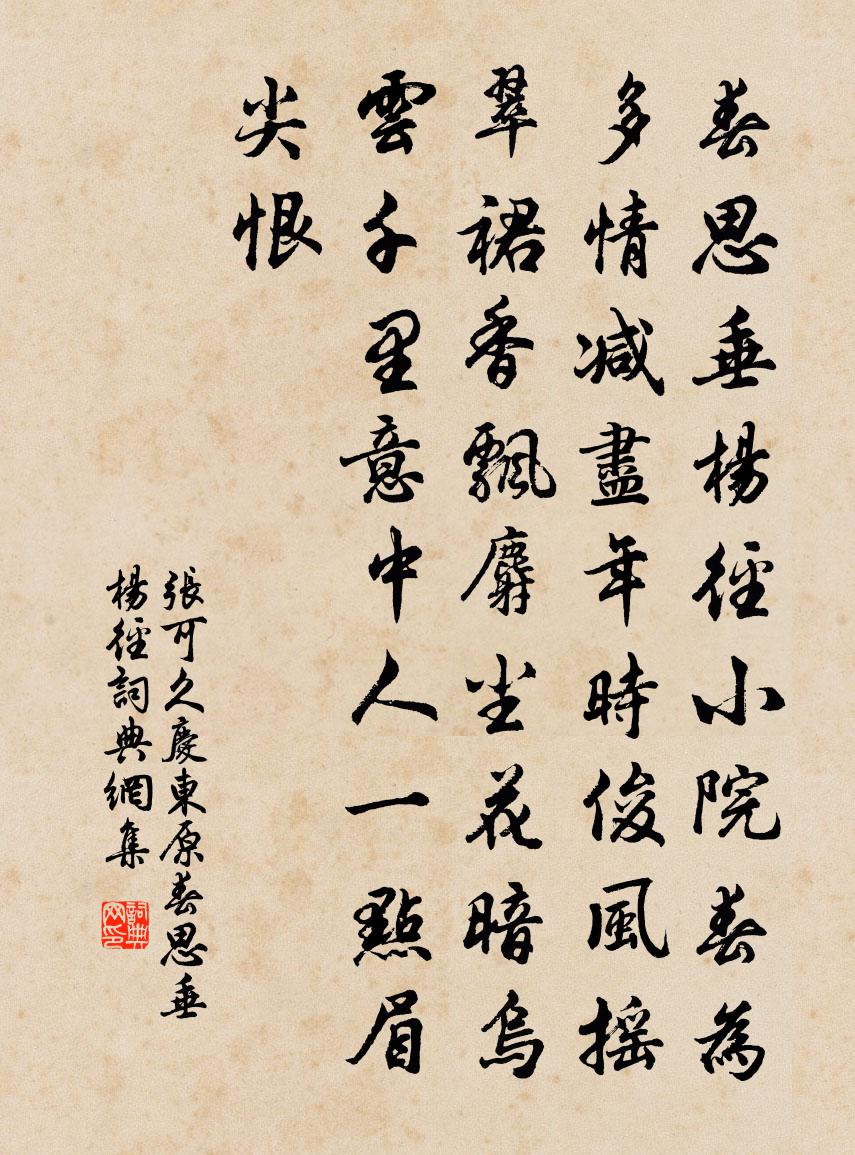 春思垂楊徑小院春為
多情減盡年時俊風搖
翠裙香飄麝塵花暗烏
雲千里意中人一點眉
尖恨
張可久慶東原春思垂
楊徑詞典網集
詞典网印